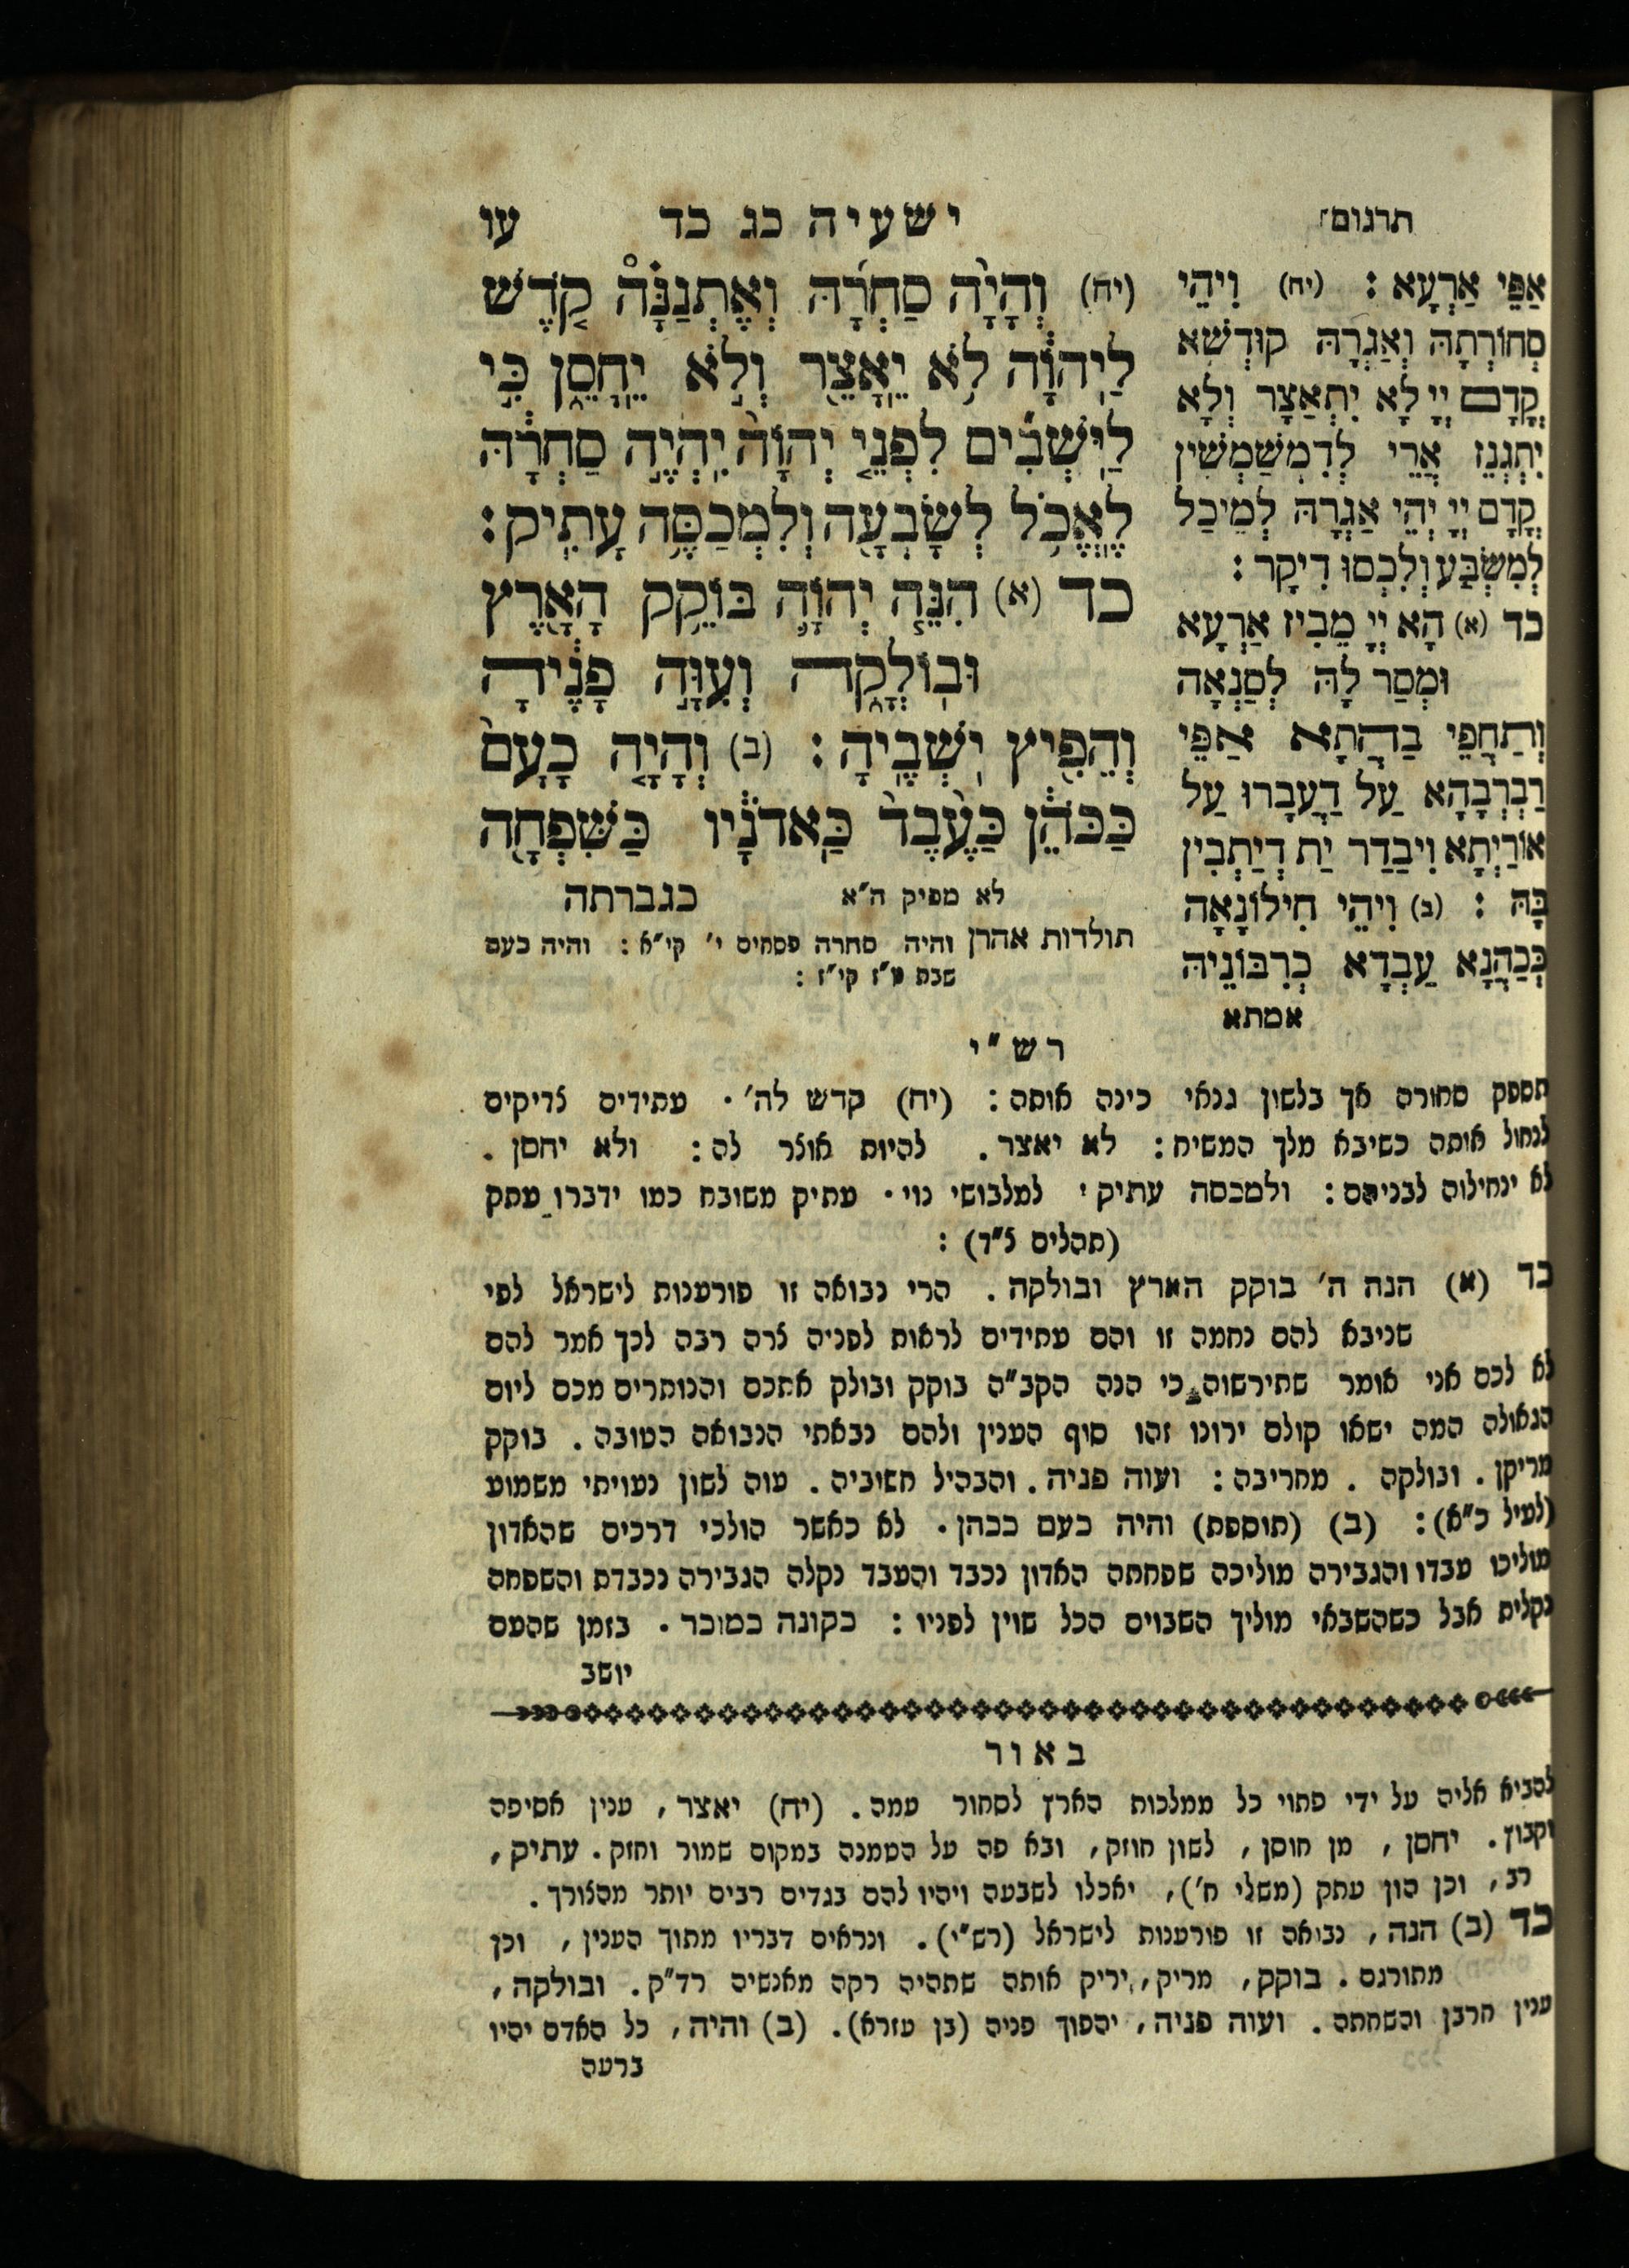 תרגום
ישעיה כג כד
עו
אַפֵּי אַרְעָא : (יח) וִיהֵי
סְחוֹרְתָהּ וְאַגְרָהּ קוּדְשָׁא
קֳדָם יְיָ לָא יִתְאַצָר וְלָא
יִתְגְנֵז אֲרֵי לְדִמְשַׁמְשִׁין
קֳדָם יְיָ יְהֵי אַגְרָהּ לְמֵיכַל
לְמִשְׂבַּע וְלִכְסוּ דִיקָר :
כד (א) הָא יְיָ מֵבִיז אַרְעָא
וּמְסַר לָהּ לְסַנְאָה
וְתַחֲפֵי בַהֲתָא אַפֵּי
רַבְרְבָהָא עַל דַעֲבָרוּ עַל
אוֹרַיְתָא וִיבַדַר יַת דְיַתְבִין
בָּהּ : (ב) וִיהֵי חִילוֹנָאָה
כְּכַהֲנָא עַבְדָא כְרִבּוֹנֵיהּ
אמתא
(יח) וְהָיָ֨ה סַחְרָ֜הּ וְאֶתְנַנָּ֗הּ קֹ֚דֶשׁ
לַֽיהוָ֔ה לֹ֥א יֵֽאָצֵ֖ר וְלֹ֣א יֵֽחָסֵ֑ן כִּ֣י
לַיּֽשְׁבִ֞ים לִפְנֵ֤י יְהוָה֙ יִֽהְיֶ֣ה סַחְרָ֔הּ
לֶֽאֱכֹ֥ל לְשָׂבְעָ֖ה וְלִמְכַסֶּ֥ה עָתִֽיק :
כד (א) הִנֵּ֧ה יְהוָ֛ה בּוֹקֵ֥ק הָאָ֖רֶץ
וּבֽוֹלְקָ֑הּ וְעִוָּ֣ה פָנֶ֔יהָ
וְהֵפִ֖יץ יֽשְׁבֶֽיהָ : (ב) וְהָיָ֤ה כָעָם֙
כַּכֹּהֵ֔ן כַּעֶ֨בֶד֙ כַּֽאדֹנָ֔יו כַּשִּׁפְחָ֖ה
לא מפיק ה״א כגברתה
תולדות אהרן והיה סחרה פסחים י׳ קי״א : והיה כעם
שבת
רש״י
תספק סחורה אך בלשון גנאי כינה אותה : (יח) קדש לה׳. עתידים צדיקים
לנחול אותה כשיבא מלך המשיח : לא יאצר. להיות אוצר לה : ולא יחסן .
לא ינחילוה לבניהם : ולמכסה עתיק. למלבושי נוי. עתיק משובח כמו ידברו עתק
(תהלים צ״ד) :
כד (א) הנה ה׳ בוקק הארץ ובולקה. הרי נבואה זו פורענות לישראל לפי
שניבא להם נחמה זו והם עתידים לראות לפניה צרה רבה לכך אמר להם
לא לכם אני אומר שתירשוה כי הנה הקב״ה בוקק ובולק אתכם והנותרים מכם ליום
הגאולה המה ישאו קולם ירונו זהו סוף הענין ולהם נבאתי הנבואה הטובה. בוקק
מריקן. ובולקה . מחריבה : ועוה פניה. והבהיל חשוביה. עוה לשון נעויתי משמוע
(לעיל כ״א) : (ב) (תוספת) והיה כעם ככהן. לא כאשר הולכי דרכים שהאדון
מוליכו עבדו והגבירה מוליכה שפחתה האדון נכבד והעבד נקלה הגבירה נכבדת והשפחה
נקלית אבל כשהשבאי מוליך השבוים הכל שוין לפניו : כקונה כמוכר. בזמן שהעם
יושב
באור
להביא אליה על ידי פתוי כל ממלכות הארץ לסחור עמה. (יח) יאצר, ענין אסיפה
וקבוץ. יחסן, מן חוסן, לשון חוזק, ובא פה על הטמנה במקום שמור וחזק. עתיק,
רב, וכן הון עתק (משלי ח׳), יאכלו לשבעה ויהיו להם בגדים רבים יותר מהצורך.
כד (ב) הנה, נבואה זו פורענות לישראל (רש״י). ונראים דבריו מתוך הענין, וכן
מתורגם. בוקק, מריק, יריק אותה שתהיה רקה מאנשיה רד״ק. ובולקה,
ענין חרבן והשחתה. ועוה פניה, יהפוך פניה (בן עזרא). (ב) והיה, כל האדם יהיו
ברעה